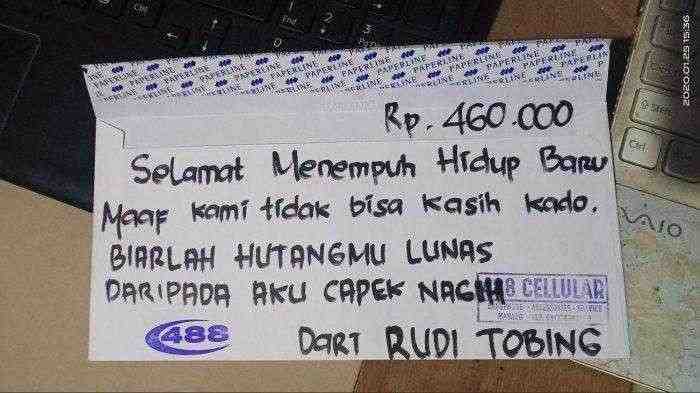 PAPERLINE PAPERLINE PAPERLINE PAPERLINE PAPERLINE
Rp. 460.000
Selamat Menempuh Hidup Baru
Maaf kami tidak bisa kasih kado.
BIARLAH HUTANGMU LUNAS
DARIPADA AKU CAPEK NAGIH
8 CELLULAR
488
Dari RUDI TOBING
VAIO
Ctrl
Shift
End
2020.01.25 15:36